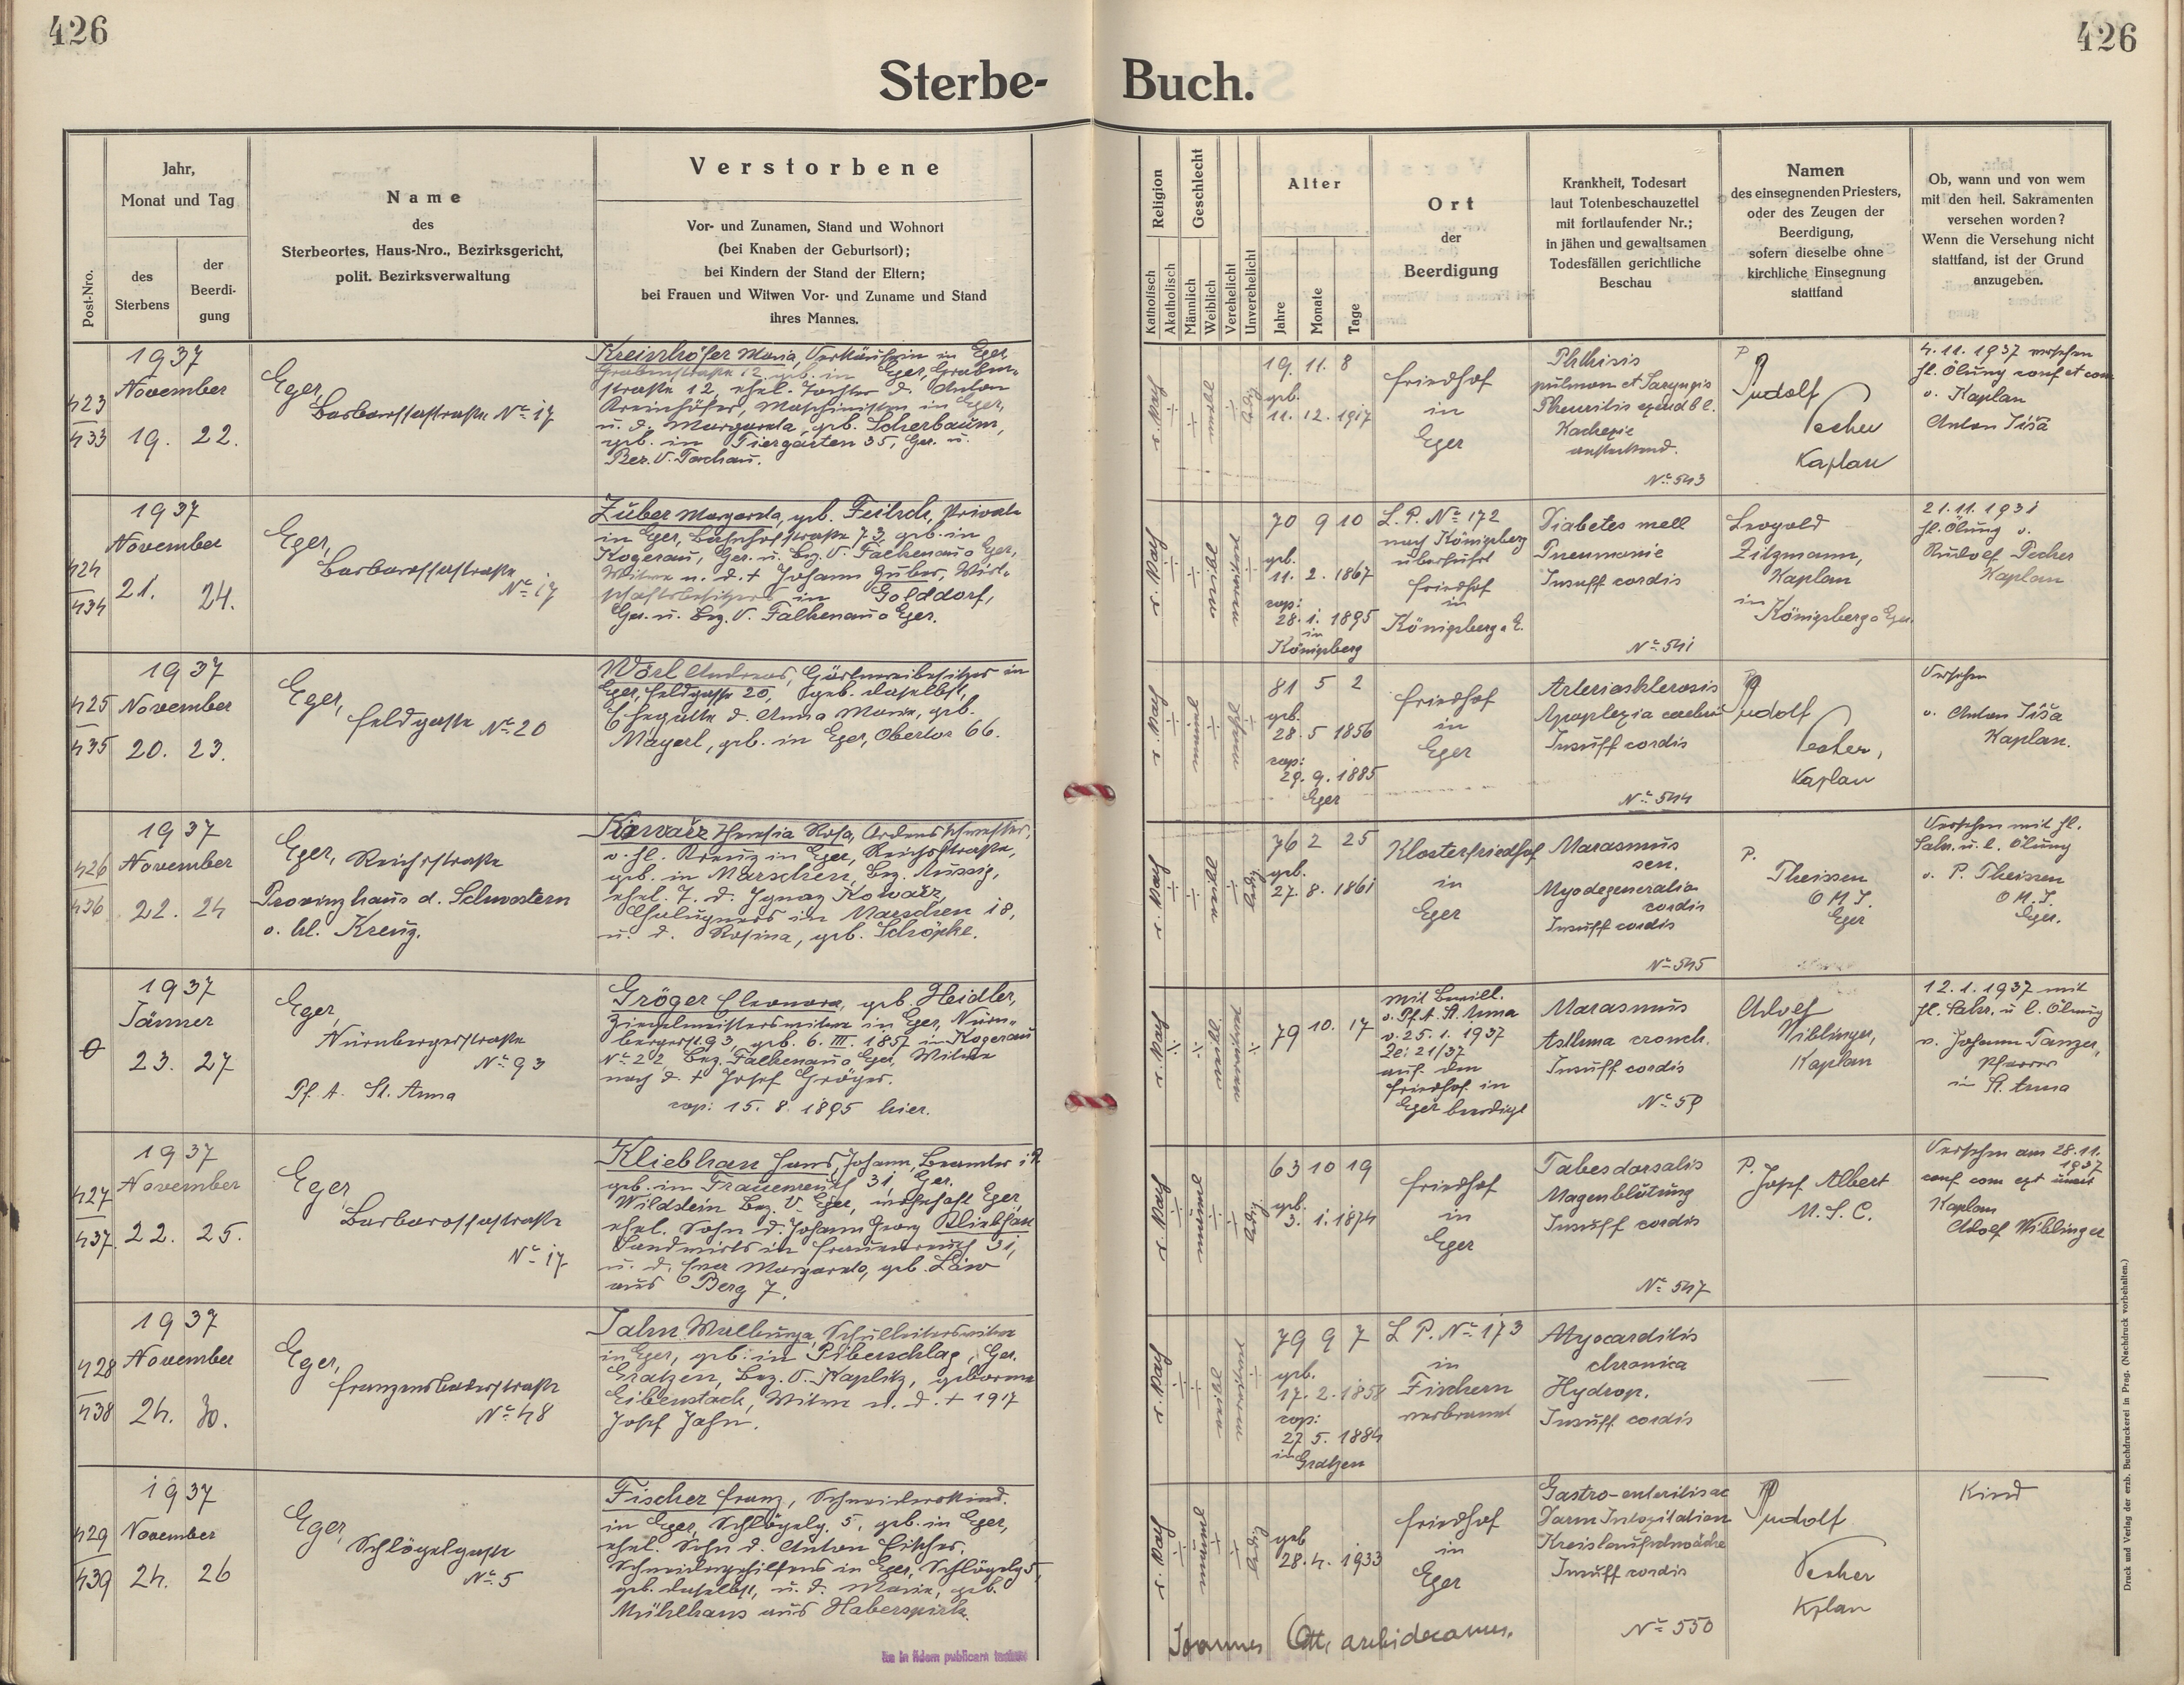 426
426
Sterbe-
Buch.
Post-Nro.
Jahr,
Monat und Tag
des
Sterbens
der
Beerdi-
gung
Name
des
Sterbeortes, Haus-Nro., Bezirksgericht,
polit. Bezirksverwaltung
Verstorbene
Vor- und Zunamen, Stand und Wohnort
(bei Knaben der Geburtsort);
bei Kindern der Stand der Eltern;
bei Frauen und Witwen Vor- und Zuname und Stand
ihres Mannes.
Religion
Katholisch
Akatholisch
Geschlecht
Männlich
Weiblich
Verehelicht
Unverehelicht
Alter
Jahre
Monate
Tage
Ort
der
Beerdigung
Krankheit, Todesart
laut Totenbeschauzettel
mit fortlaufender Nr.;
in jähen und gewaltsamen
Todesfällen gerichtliche
Beschau
Namen
des einsegnenden Priesters,
oder des Zeugen der
Beerdigung,
sofern dieselbe ohne
kirchliche Einsegnung
stattfand
Ob, wann und von wem
mit den heil. Sakramenten
versehen worden?
Wenn die Versehung nicht
stattfand, ist der Grund
anzugeben.
423
433
1937
November
19. 22.
Eger,
Barbarossastraße No 17
Kreinhöfer Maria, Verkäuferin in Eger,
Grabenstraße 12, geb. in Eger, Graben-
straße 12, ehel. Tochter d. Anton
Kreinhöfer, Maschinisten in Eger,
u. d. Margareta, geb. Scherbaum,
geb. in Tiergarten 35, Ger. u.
Bez. V. Tachau.
r. kath
ledig
19. 11. 8
geb.
11. 12. 1917
Friedhof
in
Eger
Phthisis
pulmon et Laryngis
Pleuritis exud bl.
Kachexie
ansteckend.
No 543
P
Rudolf
Pecher
Kaplan
4. 11. 1937 versehen
hl. Ölung conf et com
v. Kaplan
Anton Tiša
424
434
1937
November
21. 24.
Eger,
Barbarossastraße
No 17
Zuber Margareta, geb. Feitsch, Private
in Eger, Bahnhofstraße 73, geb. in
Kogerau, Ger. u. Bez. V. Falkenau a Eger,
Witwe n. d. + Johann Zuber, Wirt-
schaftsbesitzers in Golddorf,
Ger. u. Bez. V. Falkenau a Eger.
r. kath
70 9 10
geb.
11. 2. 1867
cop:
28. 1. 1895
in
Königsberg
L. P. No 172
nach Königsberg
überführt
Friedhof
in
Königsberg a E.
Diabetes mell
Pneumonie
Insuff cordis
No 541
Leopold
Zitzmann,
Kaplan
in
Königsberg a Eger.
21. 11. 1931
hl. Ölung v.
Rudolf Pecher
Kaplan
425
435
1937
November
20. 23.
Eger,
Feldgasse No 20
Wörl Andreas, Gärtnereibesitzer in
Eger, Feldgasse 20, geb. daselbst,
Ehegatte d. Anna Maria, geb.
Mayerl, geb. in Eger, Obertor 66.
r. kath
81 5 2
geb.
28. 5 1856
cop:
29. 9. 1885
Eger
Friedhof
in
Eger
Arteriosklerosis
Apoplexia cerebri
Insuff cordis
No 544
P
Rudolf
Pecher,
Kaplan
Versehen
v. Anton Tiša
Kaplan.
426
436
1937
November
22. 24
Eger, Reichsstraße
Provinzhaus d. Schwestern
v. hl. Kreuz.
Kowarz Theresia Rosa, Ordensschwester,
v. hl. Kreuz in Eger, Reichsstraße,
geb. in Marschen, Bez. Aussig,
ehel. T. d. Ignaz Kowarz,
in Marschen 18,
u. d. Rosina, geb. Schöpke.
r. kath
ledig
76 2 25
geb.
27. 8. 1861
Klosterfriedhof
in
Eger
Marasmus
sen.
Myodegeneratio
cordis
Insuff cordis
No 545
P.
Theissen
O M J.
Eger
Versehen mit hl.
Sakr. u. l. Ölung
v. P. Theissen
O M. J.
Eger.
0
1937
Jänner
23. 27
Eger,
Nürnbergerstraße
No 93
Pf. A. St. Anna
Gröger Eleonora, geb. Heidler,
Ziegelmeisterswitwe in Eger, Nürn-
bergerst. 93, geb. 6. III. 1857 in Kogerau
No 22, Bez. Falkenau a Eger, Witwe
nach d. + Josef Gröger.
cop: 15. 8. 1895 hier.
r. kath
79 10. 17
Mit Bewill.
v. Pf. A. St. Anna
v. 25. 1. 1937
Ze: 21/37
auf dem
Friedhof in
Eger beerdigt
Marasmus
Asthma bronch.
Insuff cordis
No 59
Adolf
Wiblinger,
Kaplan
12. 1. 1937 mit
hl. Sakr. u l. Ölung
v. Johann Tanzer,
Pfarrer
in St. Anna
427
437
1937
November
22. 25.
Eger
Barbarossastraße
No 17
Kliebhan Hans, Johann, Beamter i R
geb. in Frauenreuth 31, Ger.
Wildstein Bez. V. Eger, wohnhaft Eger
ehel. Sohn d. Johann Georg Kliebhan
Landwirts in Frauenreuth 31,
u. d. Eva Margareta, geb. Löw
aus Berg 7.
r. kath
ledig
63 10 19
geb.
3. 1. 1874
Friedhof
in
Eger
Tabes dorsalis
Magenblutung
Insuff cordis
No 547
P.
Josef Albert
M. S. C.
Versehen am 28. 11.
1937
Kaplan
Adolf Wiblinger
428
438
1937
November
24. 30.
Eger,
Franzensbaderstraße
No 48
Jahn Walburga, Schulleiterswitwe
in Eger, geb. in Piberschlag, Ger.
Gratzen, Bez. V. Kaplitz, geborene
Eibenstack, Witwe n. d. + 1917
Josef Jahn.
r. kath
79 9 7
geb.
17. 2. 1858
cop:
27. 5. 1884
in Gratzen
L P. No 173
in
Fischern
verbrannt
Myocarditis
chronica
Hydrop.
Insuff cordis
429
439
1937
November
24. 26
Eger,
Schlögelgasse
No 5
Fischer Franz, Schneiderskind.
in Eger, Schlögelg. 5, geb. in Eger,
ehel. Sohn d. Anton Fischer,
Schneidergehilfens in Eger, Schlögelg 5,
geb. daselbst, u. d. Marie, geb.
Mühlhans aus Haberspirk.
r. kath
ledig
geb
28. 4. 1933
Friedhof
in
Eger
Gastro-enteritis ac
Darm Intoxitation
Kreislaufschwäche
Insuff cordis
No 550
P
Rudolf
Pecher
Kplan
Kind
Joannes Ott, archidecanus.
in fidem publicam
Druck und Verlag der erzb. Buchdruckerei in Prag. (Nachdruck vorbehalten.)